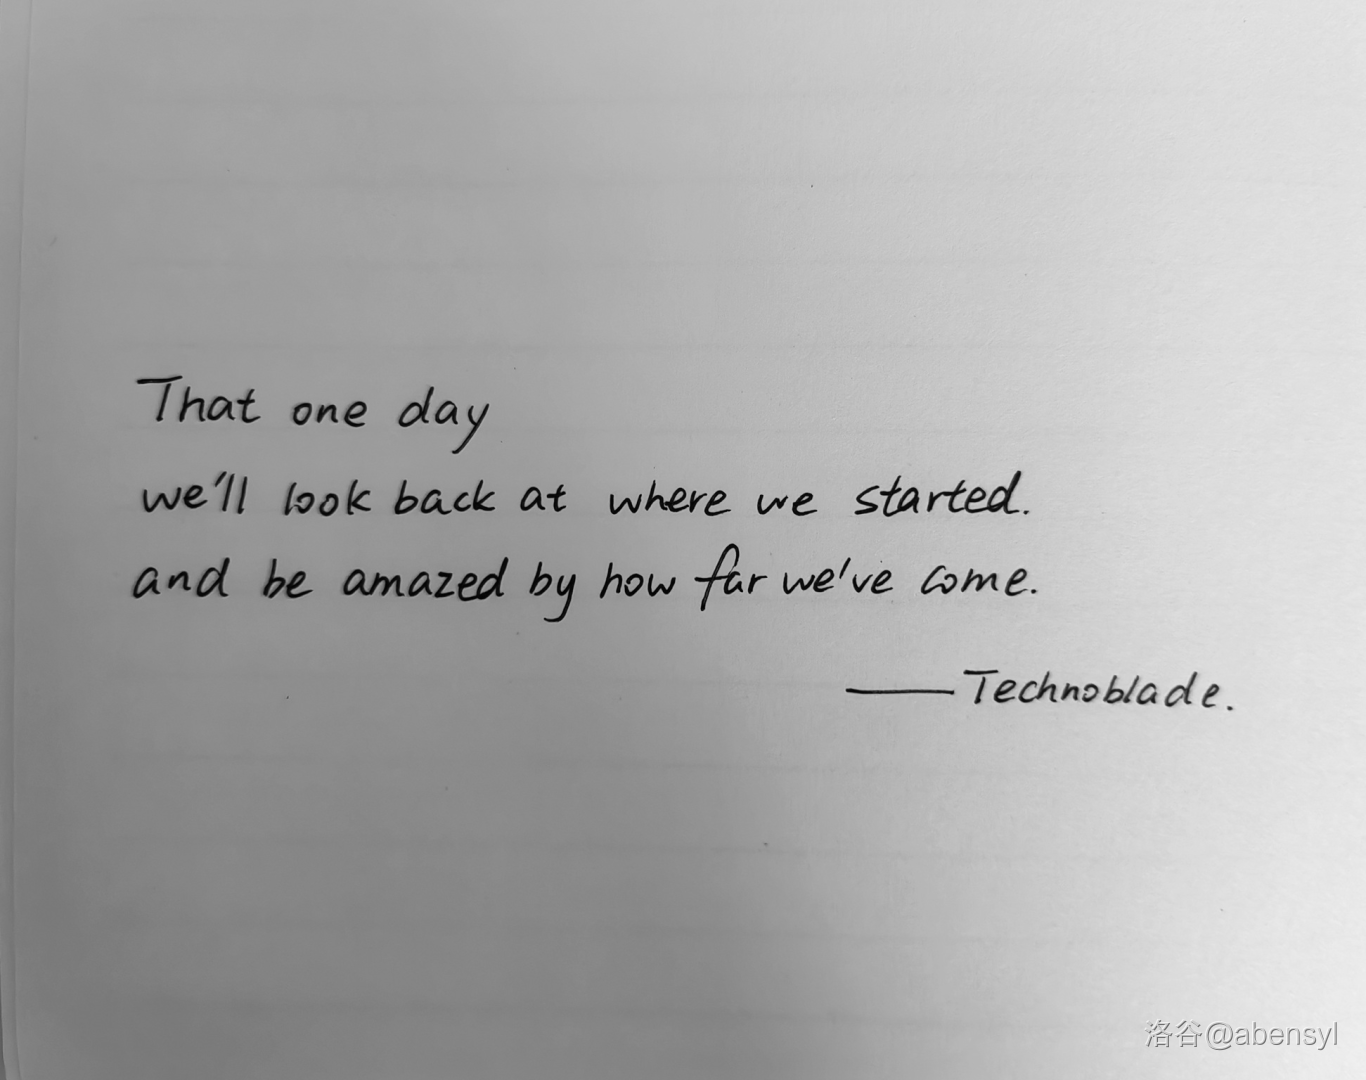 That one day
we'll look back at where we started.
and be amazed by how far we've come.
——Technoblade.
洛谷@abensyl